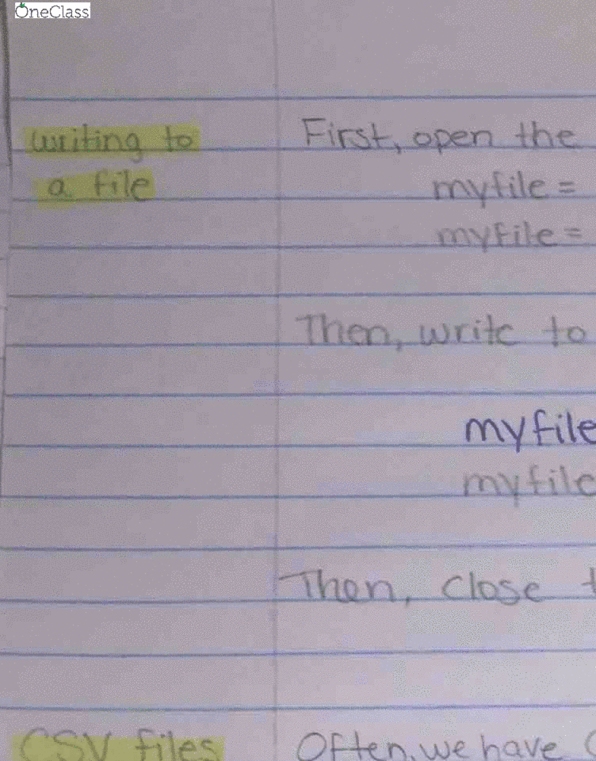 OneClass
writing to First, open the
a file myfile =
myfile =
Then, write to
myfile
myfile
Then, close t
CSV files Often, we have